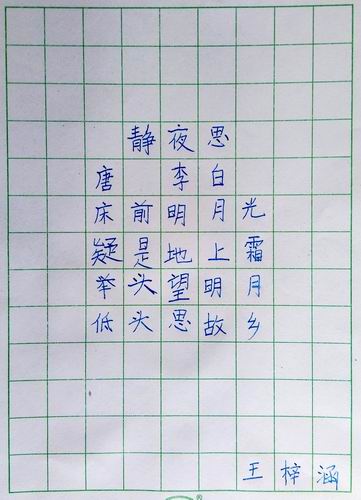 静夜思
唐 李白
床前明月光
疑是地上霜
举头望明月
低头思故乡
王梓涵